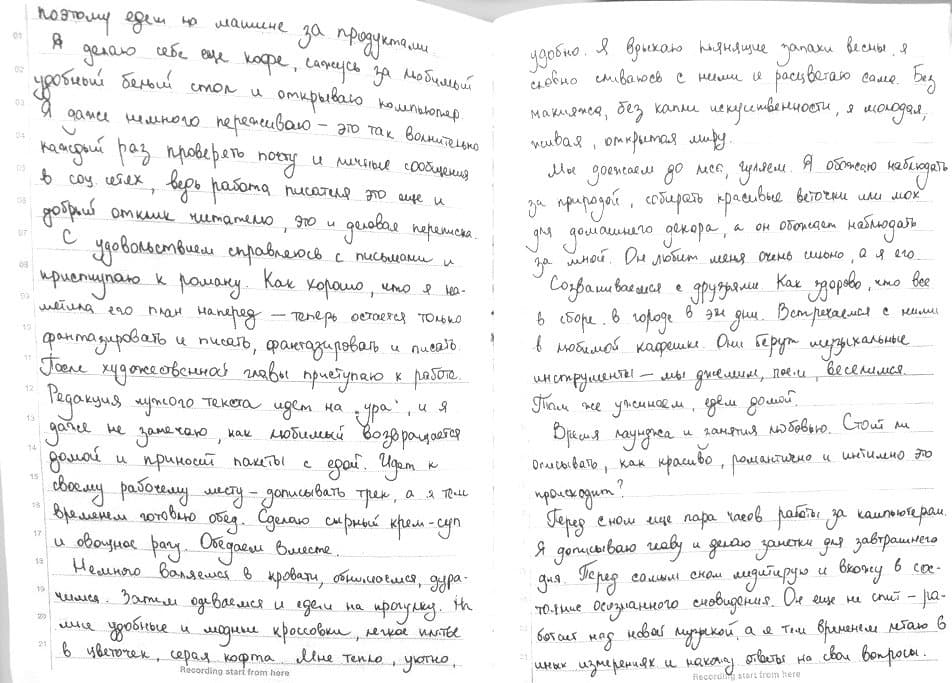 поэтому едем на машине за продуктами.
Я делаю себе еще кофе, сажусь за любимый
удобный белый стол и открываю компьютер.
Я даже немного переживаю – это так волнительно
каждый раз проверять почту и личные сообщения
в соц. сетях, ведь работа писателя это еще и
добрый отклик читателю, это и деловая переписка.
С удовольствием справляюсь с письмами и
приступаю к роману. Как хорошо, что я на-
метила его план наперед – теперь остается только
фантазировать и писать, фантазировать и писать.
После художественной главы приступаю к работе.
Редакция чужого текста идет на „ура“, и я
даже не замечаю, как любимый возвращается
домой и приносит пакеты с едой. Идет к
своему рабочему месту – дописывать трек, а я тем
временем готовлю обед. Сделаю сырный крем-суп
и овощное рагу. Обедаем вместе.
Немного валяемся в кровати, обнимаемся, дура-
чимся. Затем одеваемся и едем на прогулку. На
мне удобные и модные кроссовки, легкое платье
в цветочек, серая кофта. Мне тепло, уютно,
Recording start from here
удобно. Я вдыхаю пьянящие запахи весны, я
словно сливаюсь с ними и расцветаю сама. Без
макияжа, без капли искуственности, я молодая,
живая, открытая миру.
Мы доезжаем до леса, гуляем. Я обожаю наблюдать
за природой, собирать красивые веточки или мох
для домашнего декора, а он обожает наблюдать
за мной. Он любит меня очень сильно, а я его
Созваниваемся с друзьями. Как здорово, что все
в сборе, в городе в эти дни. Встречаемся с ними
в любимой кафешке. Они берут музыкальные
инструменты – мы джемим, поем, веселимся.
Там же ужинаем, едем домой.
Время лаунджа и занятия любовью. Стоит ли
описывать, как красиво, романтично и интимно это
происходит?
Перед сном еще пара часов работы за компьютерам.
Я дописываю главу и делаю заметки для завтрашнего
дня. Перед самым сном медитирую и вхожу в сос-
тояние осознанного сновидения. Он еще не спит – ра-
ботает над новой музыкой, а я тем временем летаю в
иных измерениях и нахожу ответы на свои вопросы.
Recording start from here